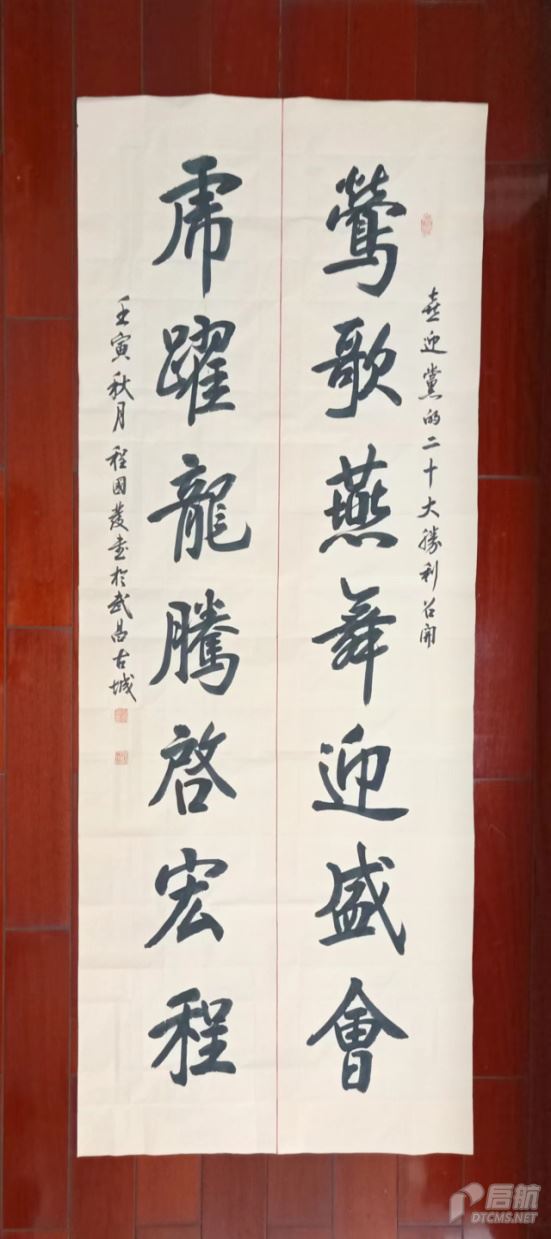 喜迎黨的二十大勝利召開
鶯歌燕舞迎盛會
虎躍龍騰啓宏程
壬寅秋月程國發書於武昌古城
启航
DTCMS.NET